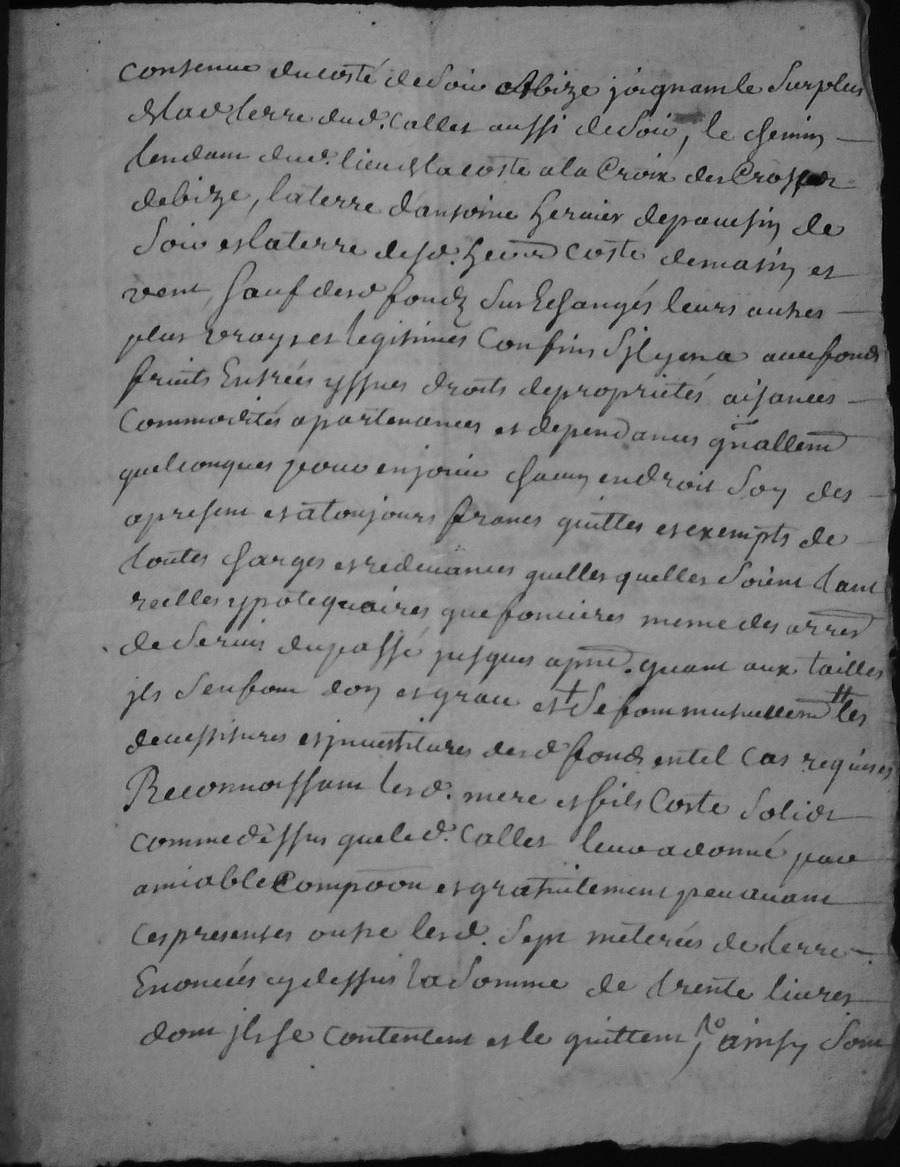 contenue du costé de Soir et bize joignant le Surplus
de lad. terre dud. Calles aussi de Soir, le chemin
tendant dud. lieu de la coste a la Croix des
de bize, la terre d'antoine hernier de
Soir et la terre desd. coste de matin et
vent, Sauf desd. fondz Sus Echangés leurs autres
plus vrays et legitimes Confins S'il y en a avec fonds
fruits Entrées yssues droits de proprietés aisances
Commodités apartenances et dependances gnallem
quelconques pour en jouir chacun endroit Soy des
apresent et a toujours francs quittes et exempts de
toutes charges et redevances quelles quelles Soient tant
reelles ypotequaires que foncieres meme des arres
de Servis du passé jusques apnt. quant aux tailles
ils S'en font don et grace et Se font mutuellem les
devestitures et jnvestitures desd. fonds en tel Cas requises
Reconnoissant lesd. mere et fils Coste Solid.
comme dessus que led. Calles leur a donné par
amiable Compoon et gratuitement peu avant
ces presentes outre lesd. Sept méterées de terre
Enoncées cy dessus la Somme de trente livres
dont ils se contentent et le quittent, ainsy Sont